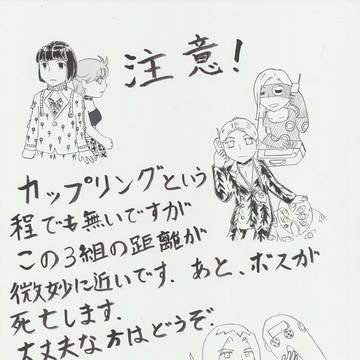 注意！
カップリングという
程でも無いですが
この3組の距離が
微妙に近いです．あと、ボスが
死亡します．
大丈夫な方はどうぞ．